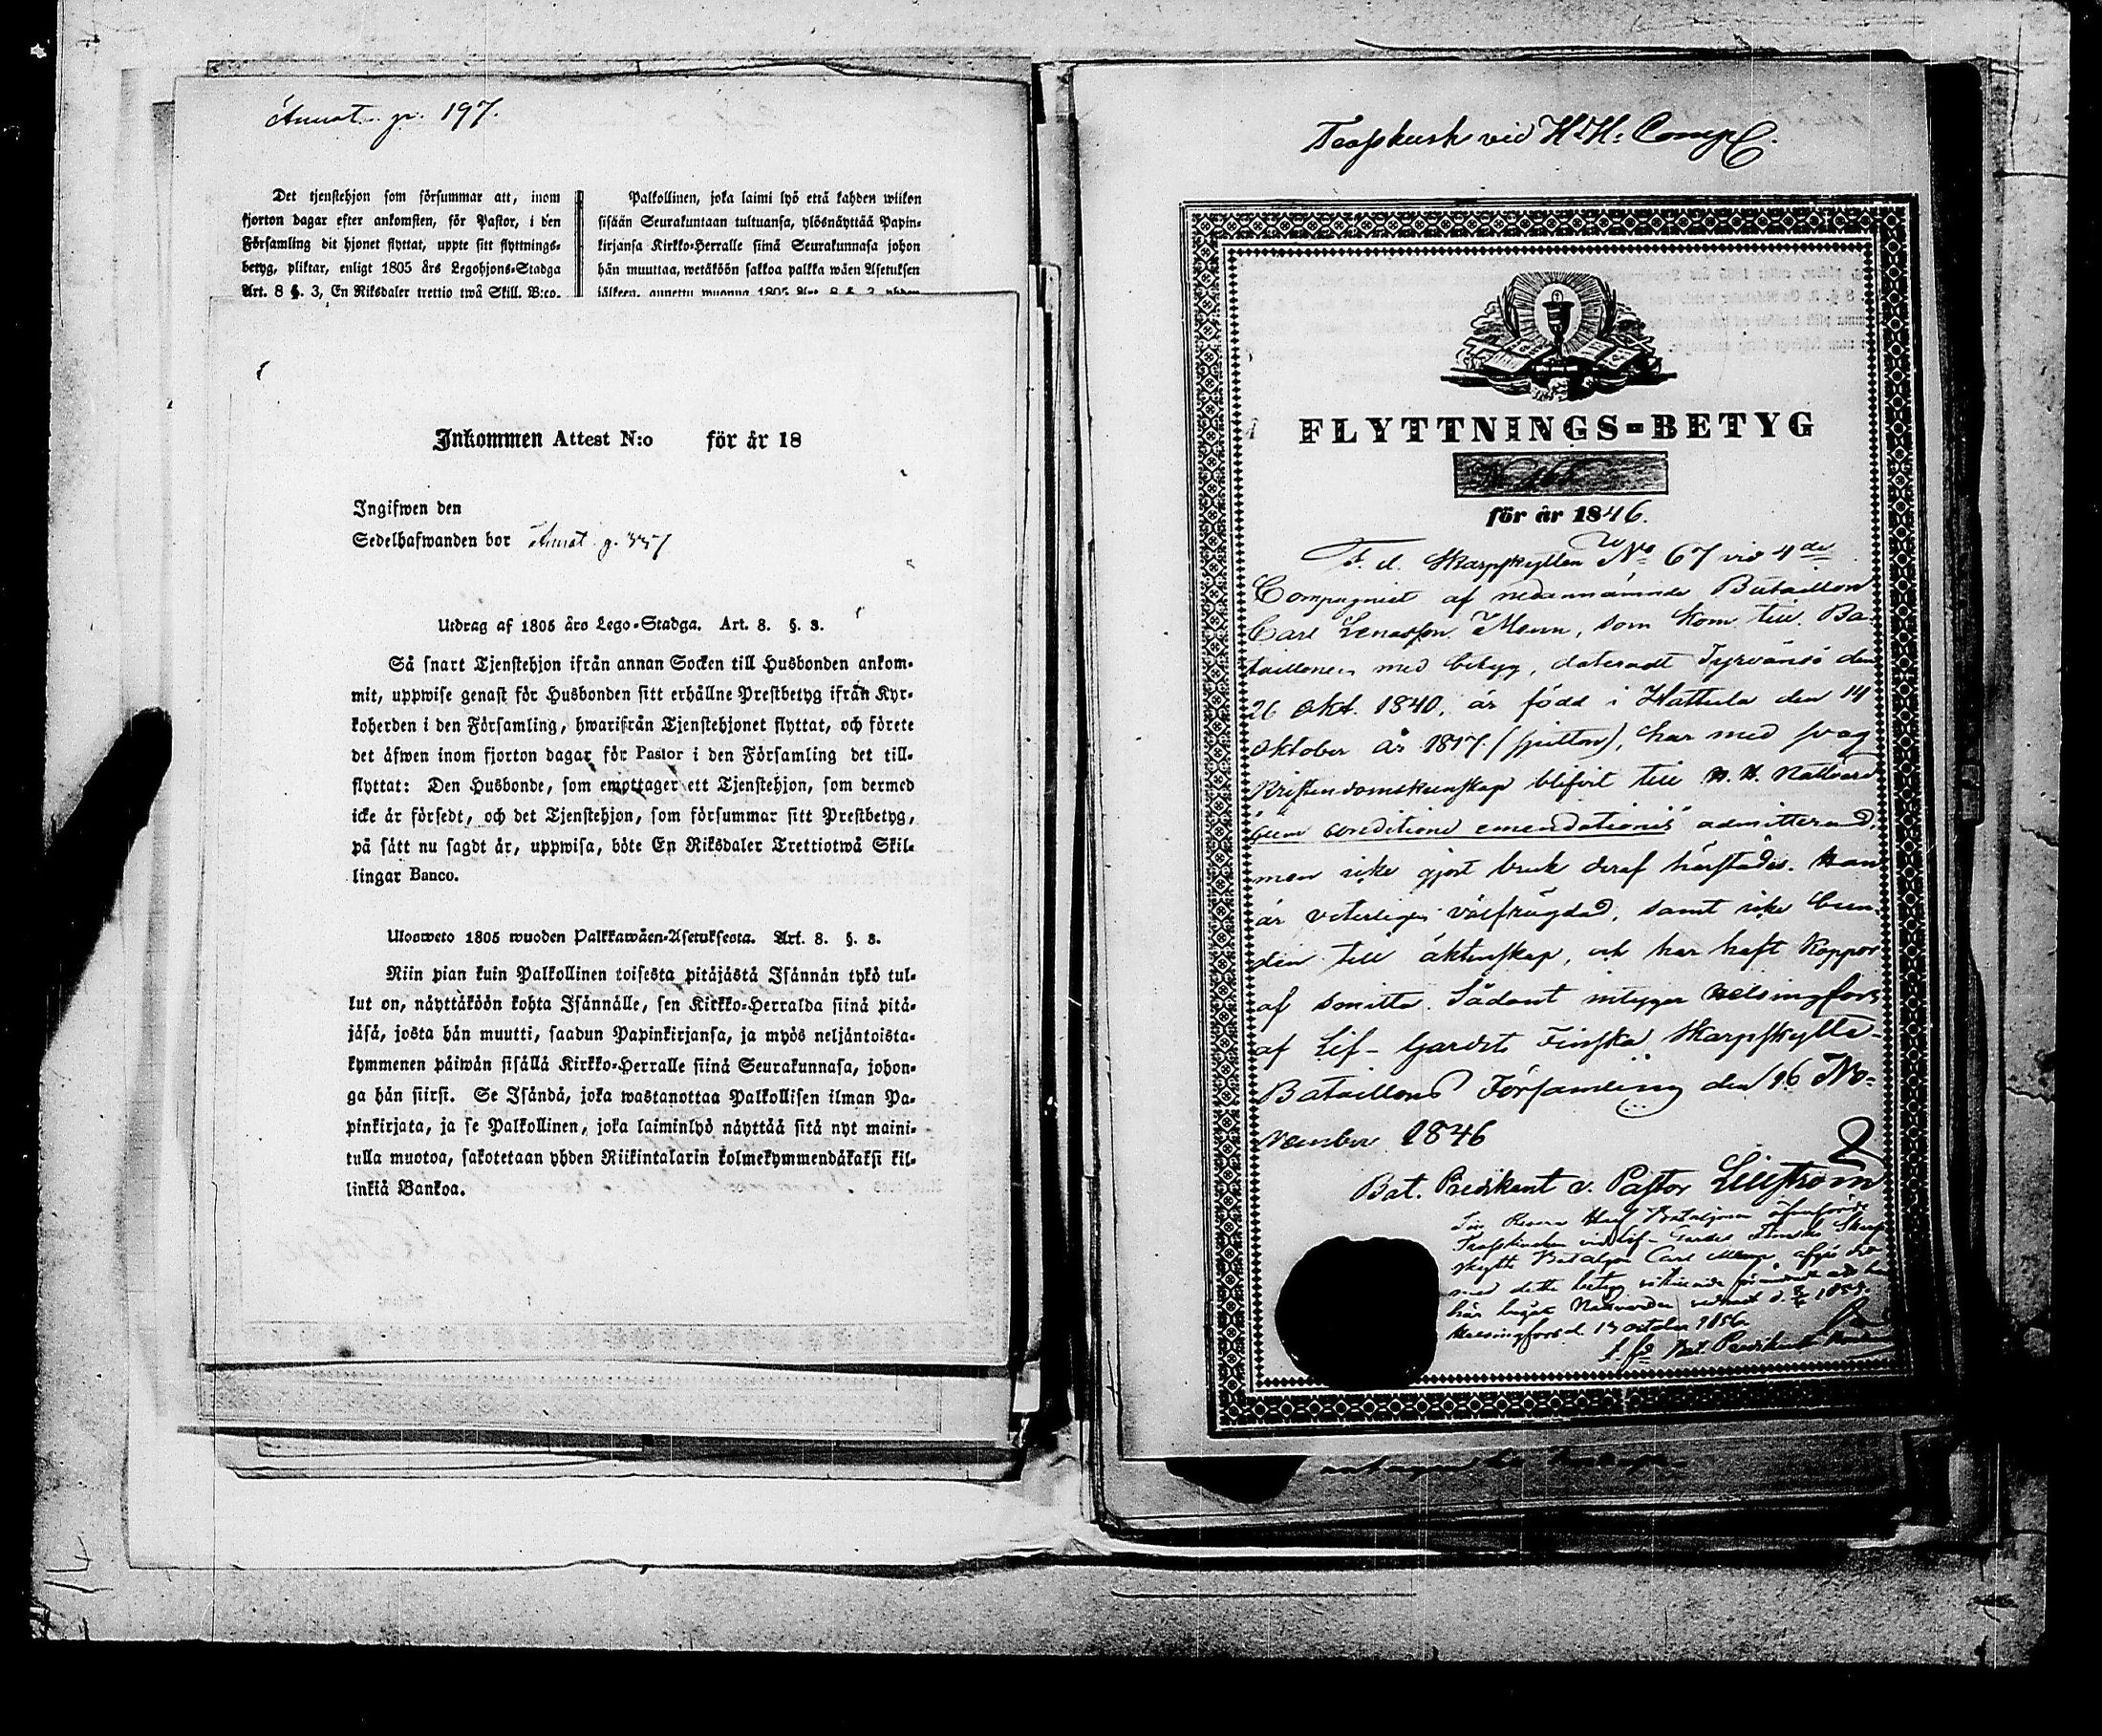 Annot. p. 197.
Det tjenstehjon som försummar att, inom
fjorton dagar efter ankomsten, för Pastor, i den
Församling dit hjonet flyttat, uppte sitt flyttnings-
betyg, pliktar, enligt 1805 års Legohjons-Stadga
Art. 8 §. 3, En Riksdaler trettio twå Skill. B:co.
Palkollinen, joka laimi lyö että kahden wiikon
sisään Seurakuntaan tultuansa, ylösnäyttää Papin-
kirjansa Kirkko-Herralle siinä Seurakunnasa johon
hän muuttaa, wetäköön sakkoa palkka wäen Asetuksen
jälkeen, annettu wuonna 1805 Art. 8 §. 3, yhden
Inkommen Attest N:o för år 18
Ingifwen den
Sedelhafwanden bor Annot. p. 337
Utdrag af 1805 års Lego-Stadga. Art. 8. §. 3.
Så snart Tjenstehjon ifrån annan Socken till Husbonden ankom-
mit, uppwise genast för Husbonden sitt erhållne Prestbetyg ifrån Kyr-
koherden i den Församling, hwarifrån Tjenstehjonet flyttat, och förete
det äfwen inom fjorton dagar för Pastor i den Församling det till-
flyttat: Den Husbonde, som emottager ett Tjenstehjon, som dermed
icke är försedt, och det Tjenstehjon, som försummar sitt Prestbetyg,
på sätt nu sagdt är, uppwisa, böte En Riksdaler Trettiotwå Skil-
lingar Banco.
Ulosweto 1805 wuoden Palkkawäen-Asetuksesta. Art. 8. §. 3.
Niin pian kuin Palkollinen toisesta pitäjästä Isännän tykö tul-
lut on, näyttäköön kohta Isännälle, sen Kirkko-Herralda siinä pitä-
jäsä, josta hän muutti, saadun Papinkirjansa, ja myös neljäntoista-
kymmenen päiwän sisällä Kirkko-Herralle siinä Seurakunnasa, johon-
ga hän siirsi. Se Isändä, joka wastanottaa Palkollisen ilman Pa-
pinkirjata, ja se Palkollinen, joka laiminlyö näyttää sitä nyt maini-
tulla muotoa, sakotetaan yhden Riikintalarin kolmekymmendäkaksi kil-
linkiä Bankoa.
Trasskusk vid H H: Comp.
FLYTTNINGS-BETYG
för år 1846.
F. d. Skarpskytten No 67 vid 4de
Compagniet af nedannämnde Bataillon
Carl Lenasson Menn, som kom till Ba-
taillonen med betyg, dateradt Tyrväntö den
26 Okt. 1840, är född i Hattula den 14
Oktober år 1817 (sjutton), har med svag
Kristendomskunskap blifvit till H. H. Nattvard
cum conditione emendationis admitterad,
men icke gjort bruk deraf härstädes. Han
är veterligen välfrägdad, samt icke bun-
den till äktenskap, och har haft Koppor
af smitta. Sådant intygar Helsingfors
af Lif-Gardets Finska Skarpskytte-
Bataillons Församling den 16 No-
vember 1846
Bat. Predikant o. Pastor Liliström
Trasskusken vid Lif-Gardets Finska Skarp-
skytte Bataljon Carl Menn, afgår
med detta betyg
här begått Nattvarden
Helsingfors d. 13 October 1856
Bat. Predikant